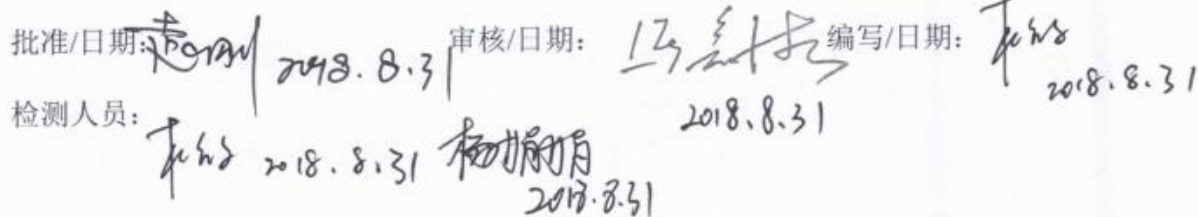 批准/日期: 2018.8.31 审核/日期: 2018.8.31 编写/日期: 2018.8.31
检测人员: 2018.8.31 2018.8.31